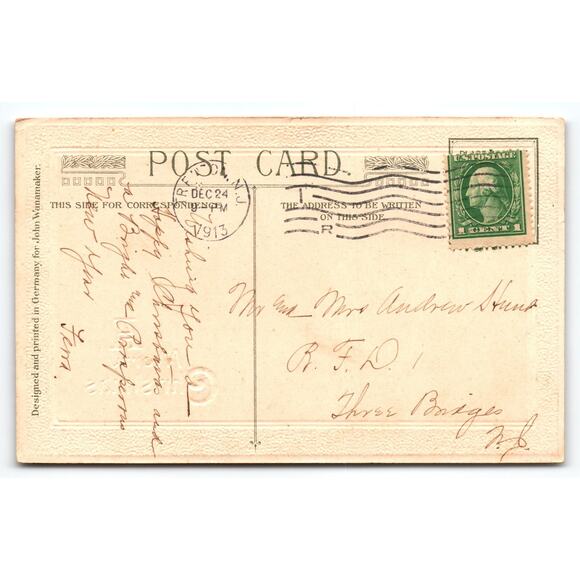 POST CARD
THIS SIDE FOR CORRESPONDENCE
THE ADDRESS TO BE WRITTEN
ON THIS SIDE
Designed and printed in Germany for John Wanamaker.
N.J.
DEC 24
PM
1913
R
U.S. POSTAGE
1 CENT 1
Wishing You a
Happy Christmas and
a Bright and Prosperous
New Year
Mr and Mrs Andrew Hunt
R. F. D. 1
Three Bridges
N.J.